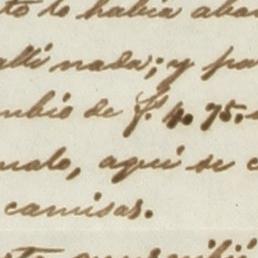 to lo habia aba
alli nada; y pa
mbio de f. 4.75.
malo, aqui se c
camisas.